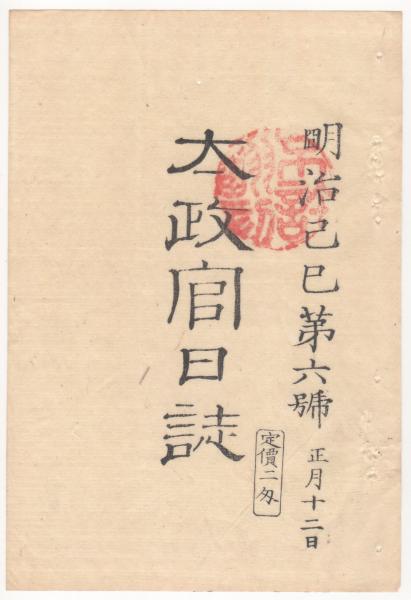 明治己巳第六號 正月十二日
定價二匁
太政官日誌